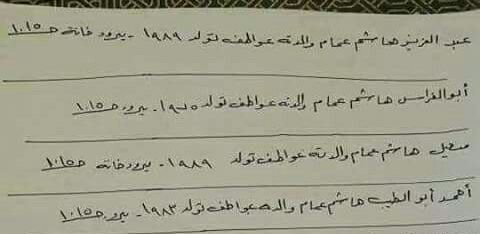 عبد العزيز هاشم عمام والدته عواطف تولد ١٩٨٩ - يبرود خانة ١٠١٥
أبو الفراس هاشم عمام والدته عواطف تولد ١٩٧٥ - يبرود ١٠١٥
هاشم عمام والدته عواطف تولد ١٩٨٩ - يبرود خانة ١٠١٥
أحمد أبو الطيب هاشم عمام والدته عواطف تولد ١٩٨٣ - يبرود ١٠١٥